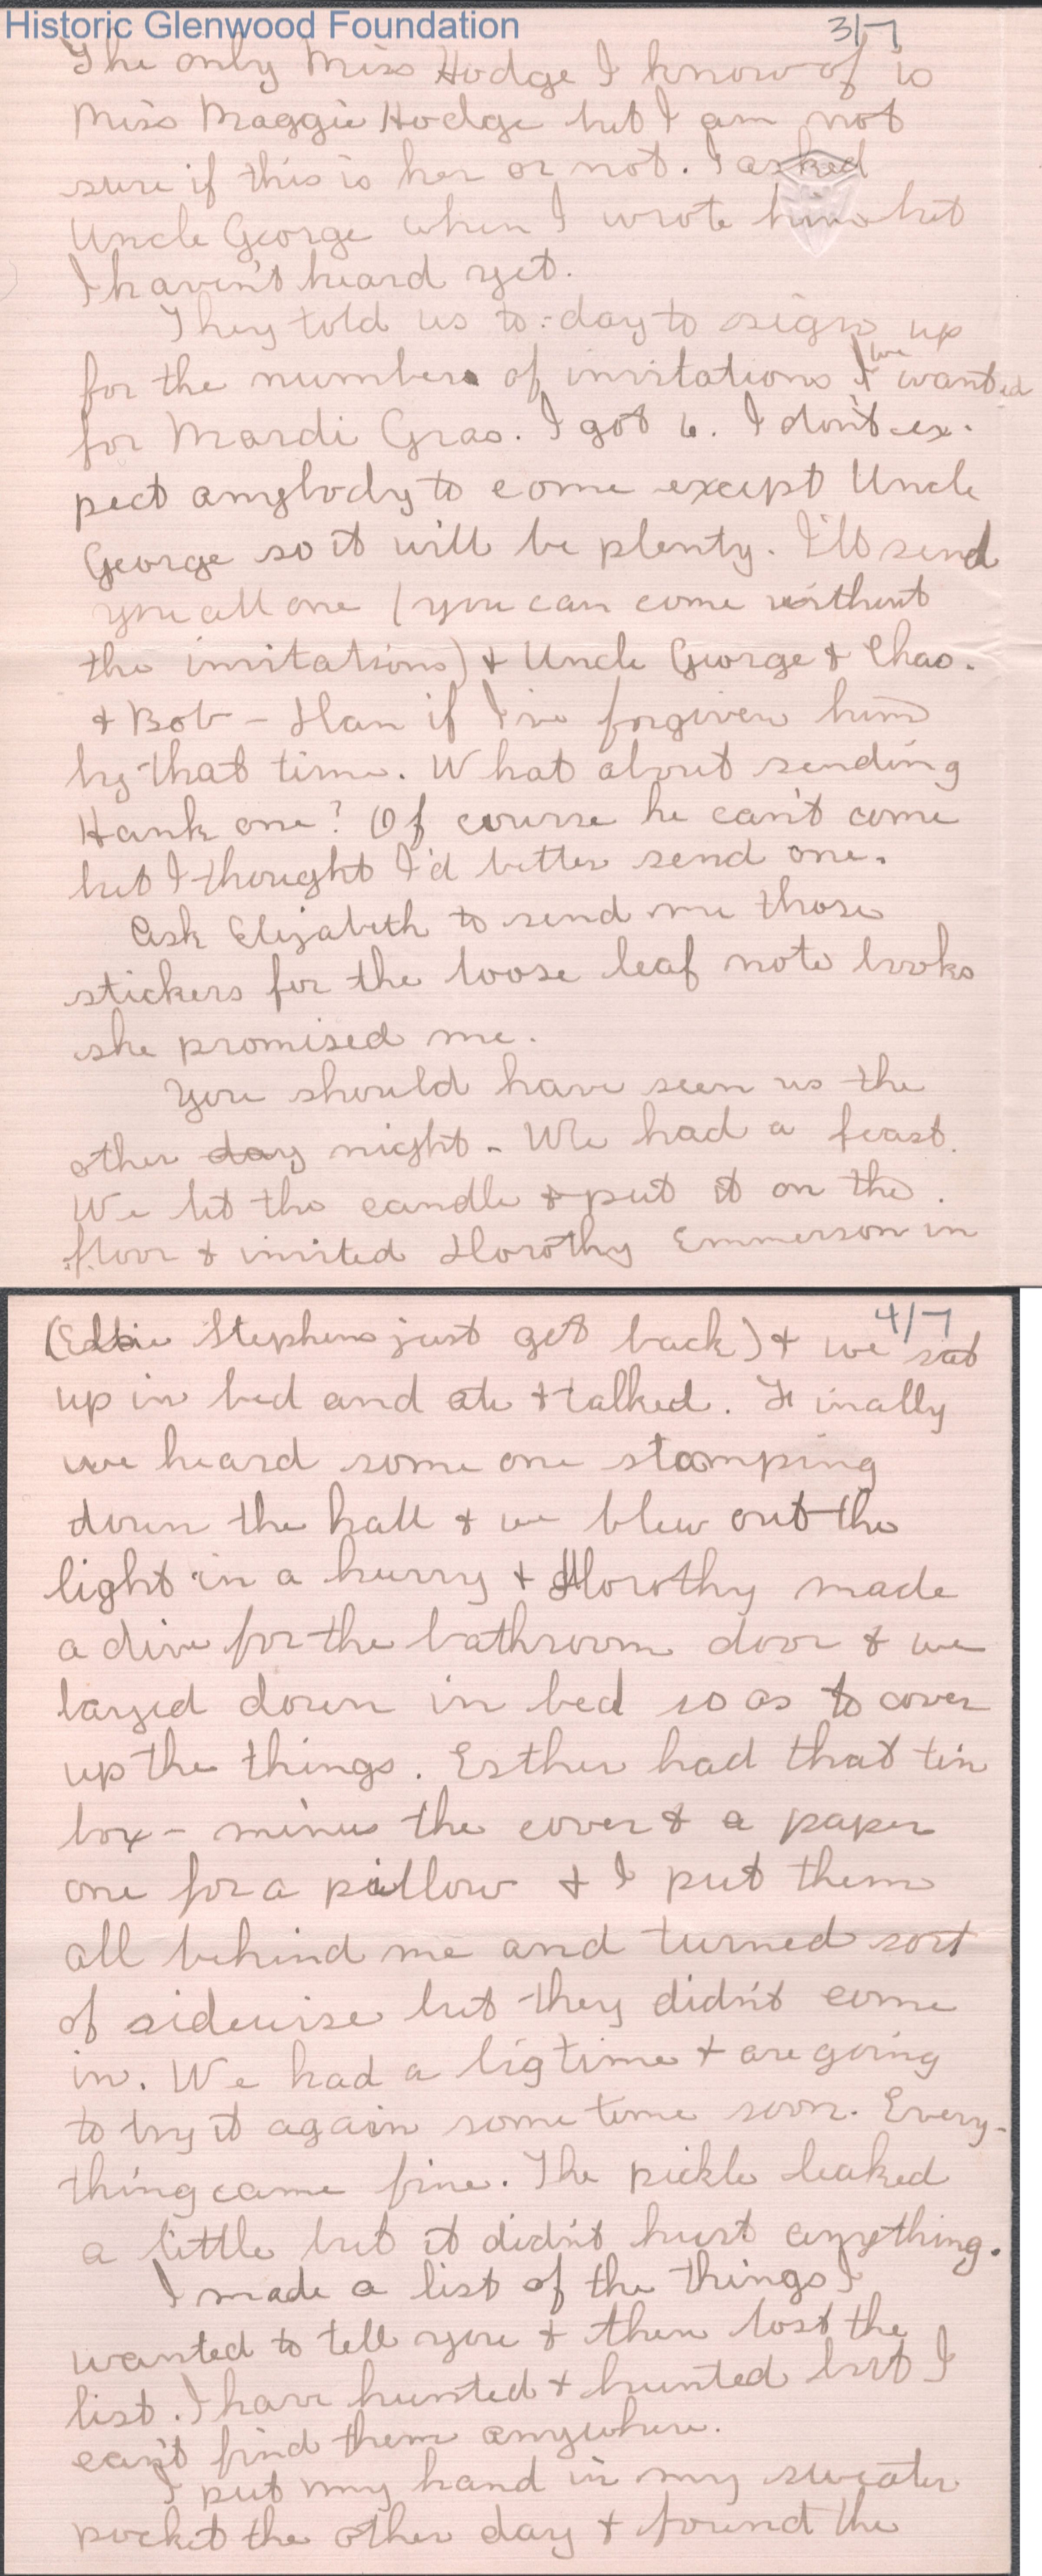 Historic Glenwood Foundation
3/7
The only Miss Hodge I know of is
Miss Maggie Hodge but I am not
sure if this is her or not. I asked
Uncle George when I wrote him but
I haven't heard yet.
They told us to-day to sign up
for the number of invitations we wanted
for Mardi Gras. I got 6. I don't ex-
pect anybody to come except Uncle
George so it will be plenty. I'll send
you all one (you can come without
the invitations) & Uncle George & Chas.
& Bob - Dan if I've forgiven him
by that time. What about sending
Hank one? Of course he can't come
but I thought I'd better send one.
Ask Elizabeth to send me those
stickers for the loose leaf note books
she promised me.
You should have seen us the
other day night. We had a feast.
We lit the candle & put it on the
floor & invited Dorothy Emmerson in
4/7
(Eddie Stephens just got back) & we sat
up in bed and ate & talked. Finally
we heard some one stomping
down the hall & we blew out the
light in a hurry & Dorothy made
a dive for the bathroom door & we
layed down in bed so as to cover
up the things. Esther had that tin
box - minus the cover & a paper
one for a pillow & I put them
all behind me and turned sort
of sidewise but they didn't come
in. We had a big time & are going
to try it again some time soon. Every-
thing came fine. The pickle leaked
a little but it didn't hurt anything.
I made a list of the things I
wanted to tell you & then lost the
list. I have hunted & hunted but I
can't find them anywhere.
I put my hand in my sweater
pocket the other day & found the